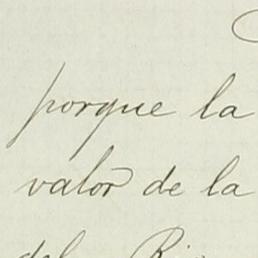 porque la
valor de la